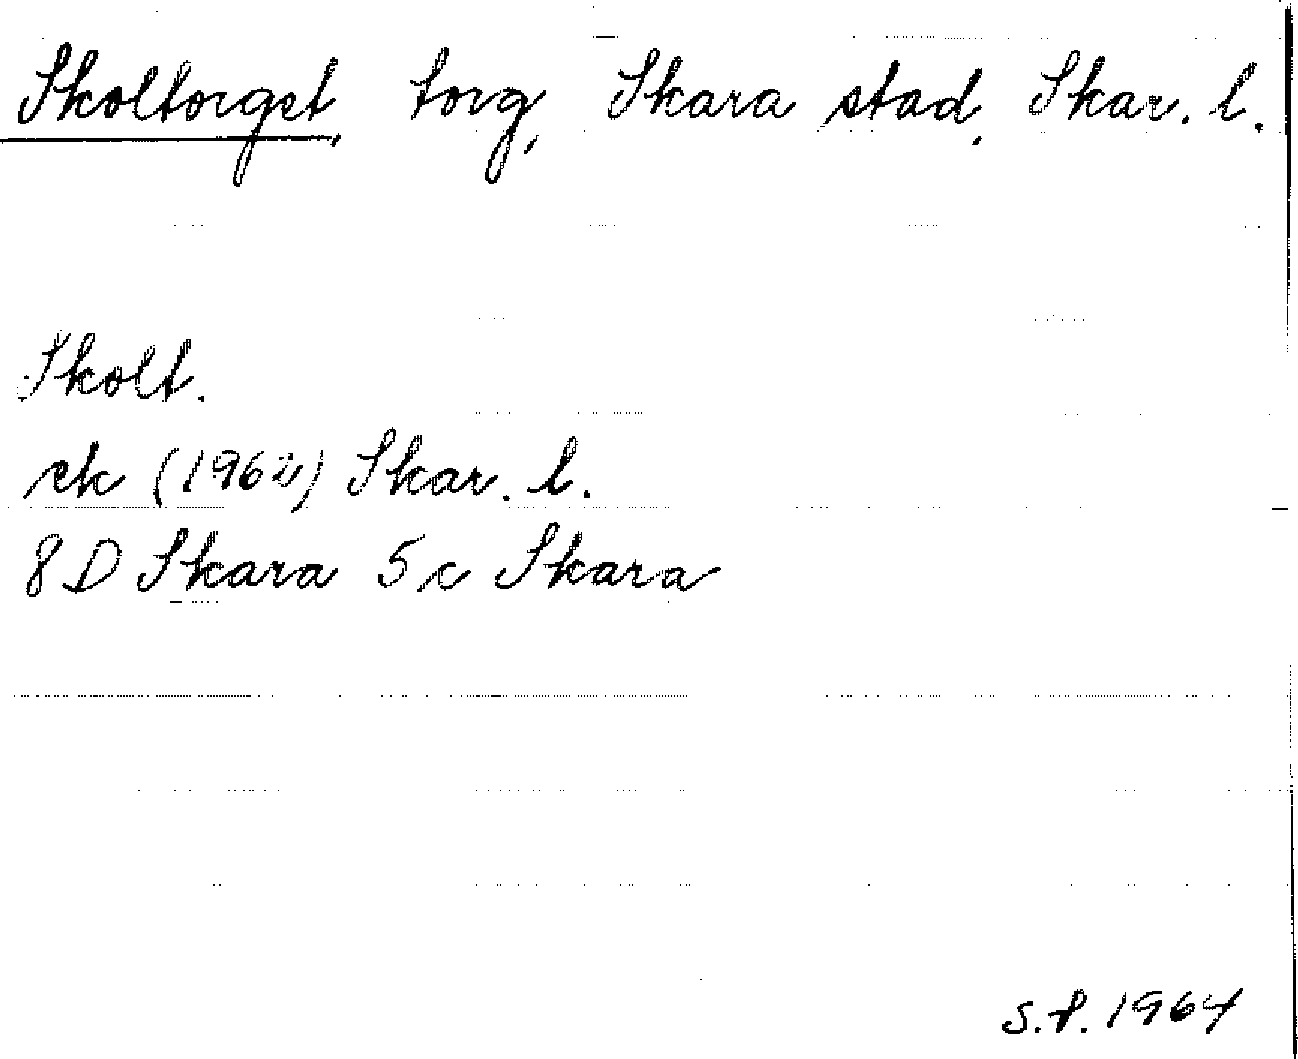 Skoltorget, torg, Skara stad, Skar. l.
Skolt.
ek (1962) Skar. l.
8D Skara 5c Skara
S.P. 1964